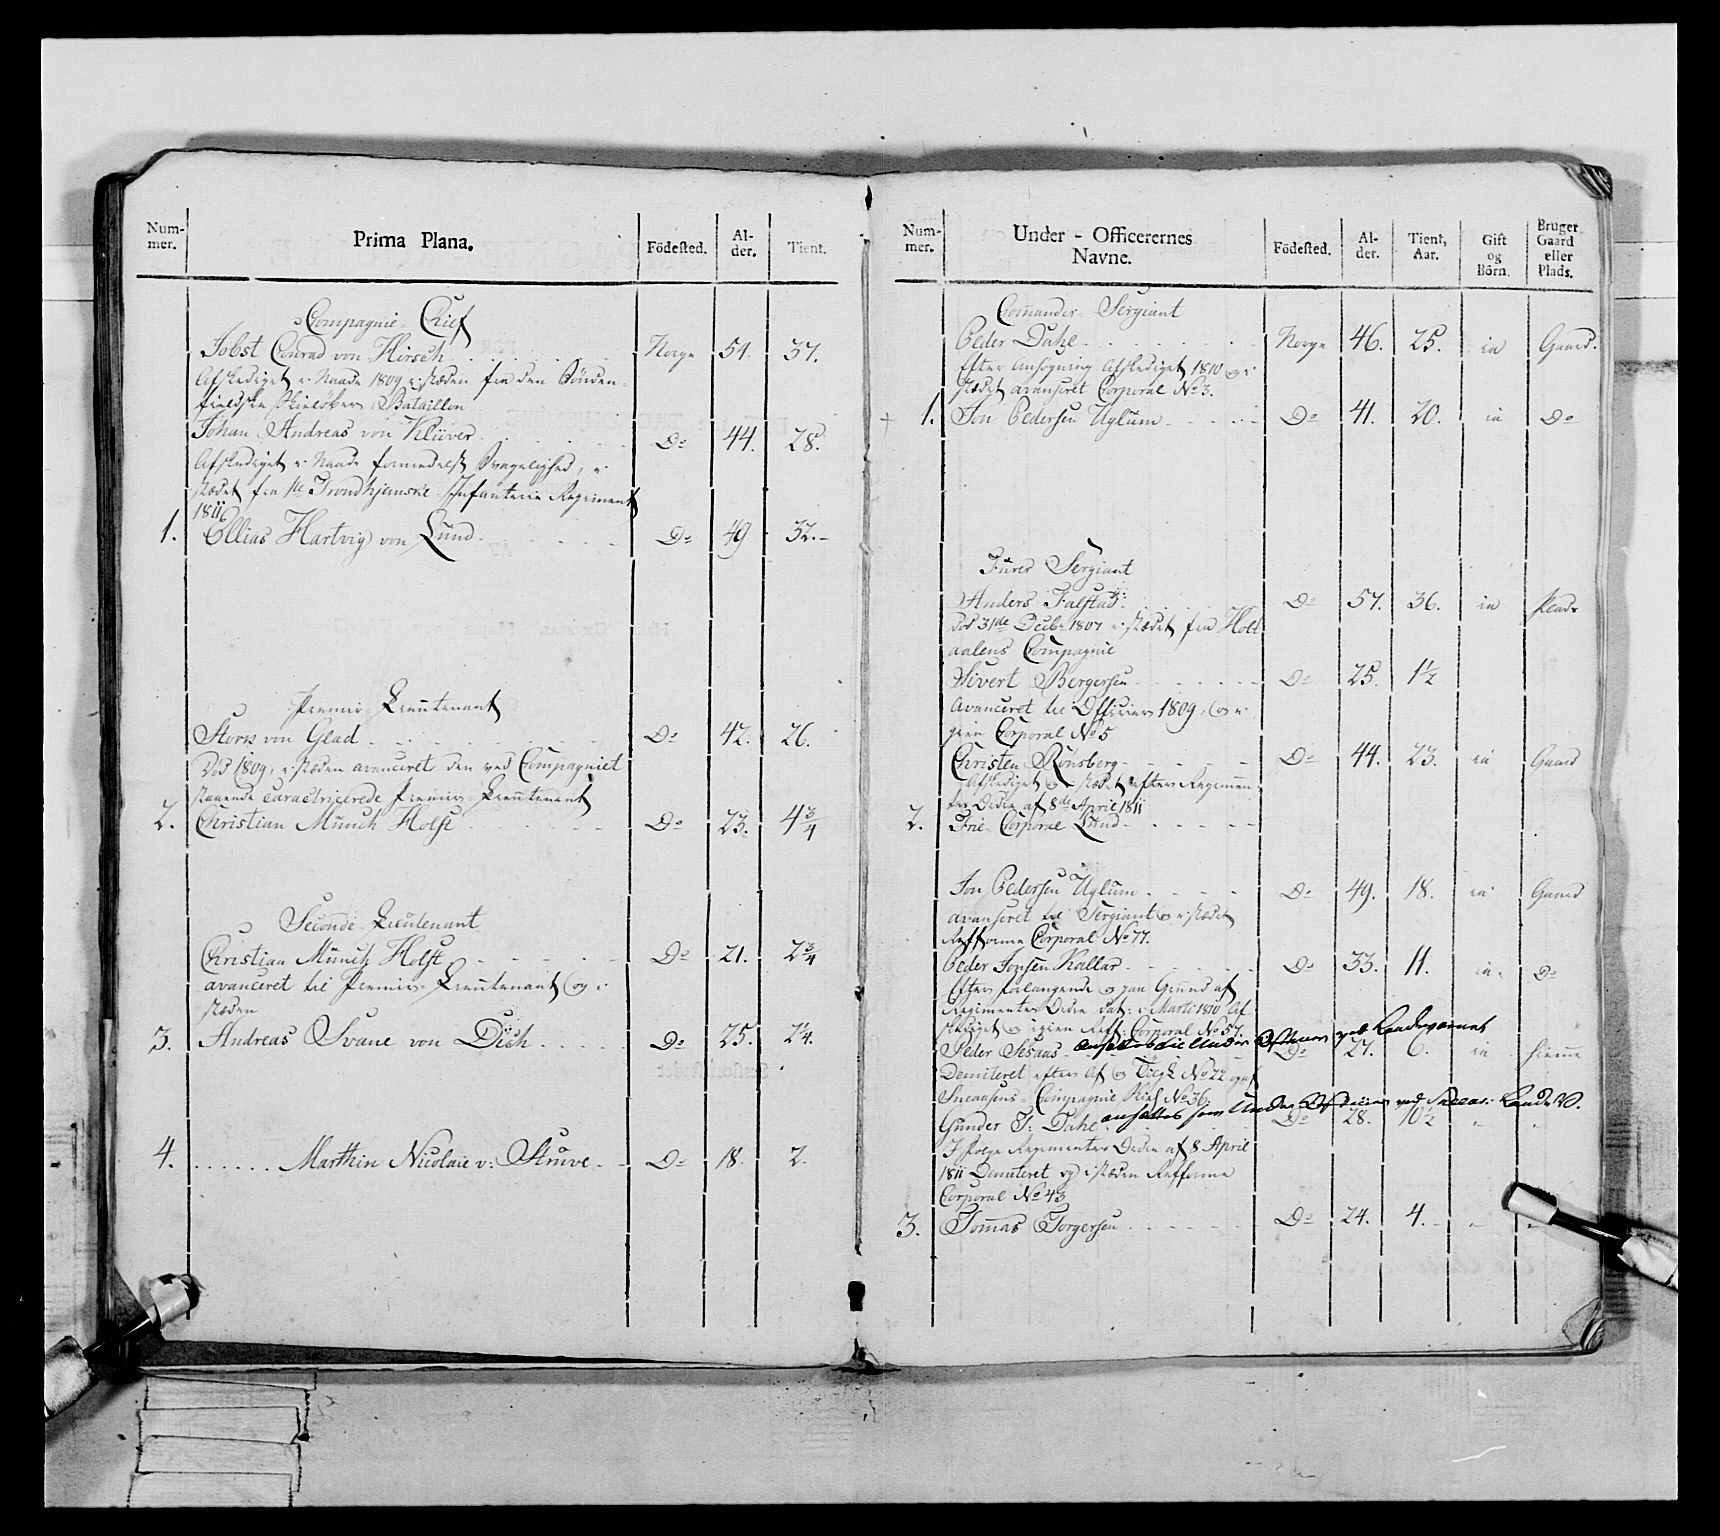 Num-
mer.
Prima Plana.
Födested.
Al-
der.
Tient.
Compagnie-Chef
Jobst Conrad von Hirsch Norge 54. 37.
Afskediget i Naade 1809 i stæden fra den Sönden-
fieldske Skielöber Bataillon
Johan Andreas von Klüver Do 44. 28.
Afskediget i Naade formedelst Svagelighed, i
stædet fra 1te Trondhjemske Infanterie Regiment
1811.
1. Ellias Hartvig von Lund Do 49 32.
Premier-Lieutenant
Stork von Glad Do 42. 26.
Död 1809, i stæden avanceret den ved Compagniet
staaende caracteriserede Premier-Lieutenant
2. Christian Munch Holst Do 23. 4 3/4
Seconde-Lieutenant
Christian Munch Holst Do 21. 2 3/4
avanceret til Premier-Lieutenant og i
stæden
3. Andreas Svane von Düsh Do 25. 2 1/4.
4. Marthin Nicolaie v: Struve Do 18. 2.
Num-
mer.
Under-Officerernes
Navne.
Födested.
Al-
der.
Tient,
Aar.
Gift
og
Börn.
Bruger
Gaard
eller
Plads.
Commander-Sergiant
Peder Dahl Norge 46. 25. ia Gaard.
Efter Ansögning Afskediget 1810 og i
stædet avanseret Corporal No 3.
1. Jon Pedersen Uglum Do 41. 20. ia Do
Furer Sergiant
Anders Falstad Do 57. 36. ia Plads
Död 31de Decbr 1807 i stædet fra Holt
aalens Compagnie
Sivert Bergersen Do 25. 1 1/2
Avanceret til Officier 1809, og i
gien Corporal No 5
Christen Rönsberg Do 44. 23. ia Gaard
Afskediget og i stædet efter Regimen
ter Ordre af 8de April 1811
2. Frie-Corporal Lund
Jon Pedersen Uglum Do 49. 18. ia Gaard
avanseret til Sergiant og i stædet
Refforme Corporal No 77.
Peder Jonsen Kallar Do 33. 11. ia. Do
Efter forlangende og paa Grund af
Regimenter Ordre dat: Marti 1810 Af
skediget og igien Reff: Corporal No 57.
Peder Sesaas ansat som Under Officeer ved Landeværnet Do 27. 6. ia hiemme
Demiteret efter Af og Tilg L No 22 og af
Sneaasens Compagnie No 36.
Gunder T: Dahl ansættes som Under Officeer ved Sneas: Lande V. Do 28. 10 1/2
I fölge Regimenter Ordre af 8 April
1811 Demiteret og i stæden Refforme
Corporal No 43
3. Tomas Torgersen Do 24. 4.